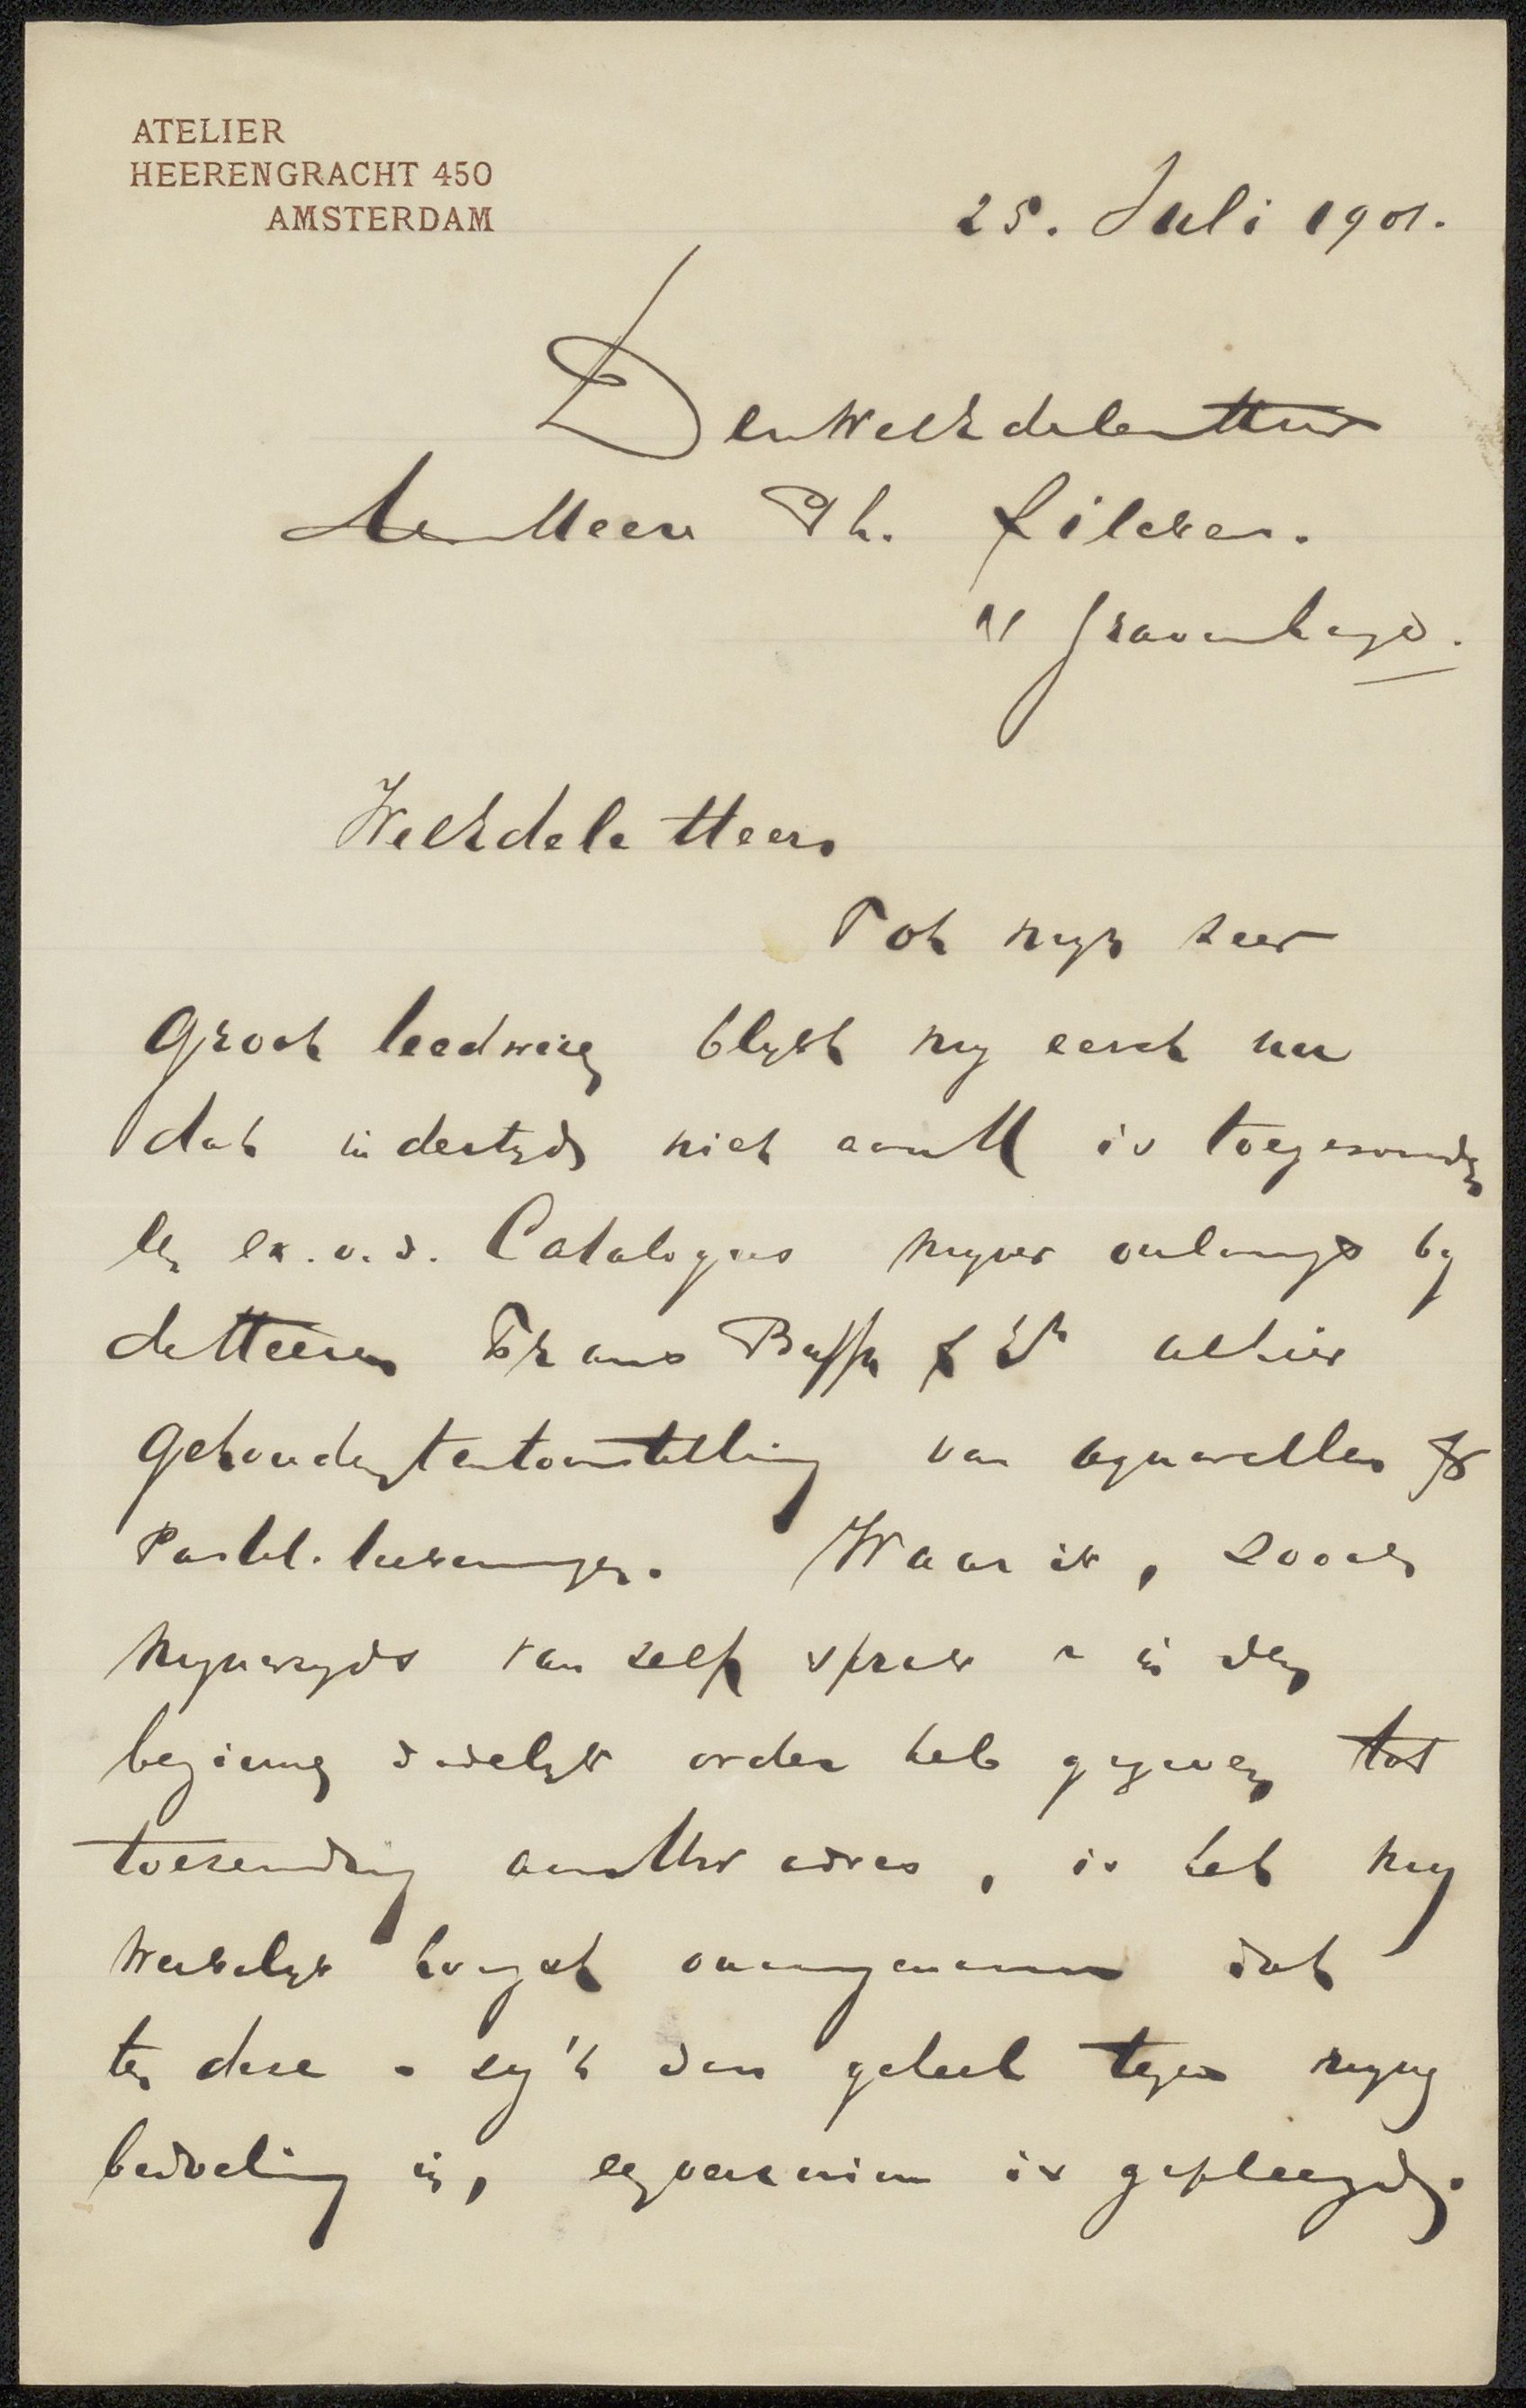 ATELIER
HEERENGRACHT 450
AMSTERDAM
25. Juli 1901.
Den WelEdelen Heer
den Heere Ph. Zilcken.
's Gravenhage.
WelEdele Heer,
Tot mijn zeer
groot leedwezen blijkt mij eerst nu
dat indertijd niet aan U is toegezonden
een ex. v. d. Catalogus mijner onlangs bij
de Heeren Frans Buffa & Zn alhier
gehouden tentoonstelling van aquarellen &
Pastel-teekeningen. Waar ik, zooals
mijnerzijds van zelf sprak - in den
beginne dadelijk order heb gegeven tot
toezending aan Uw adres, is het mij
werkelijk hoogst onaangenaam dat
ten deze - zij 't dan geheel tegen mijne
bedoeling in, een verzuim is gepleegd.